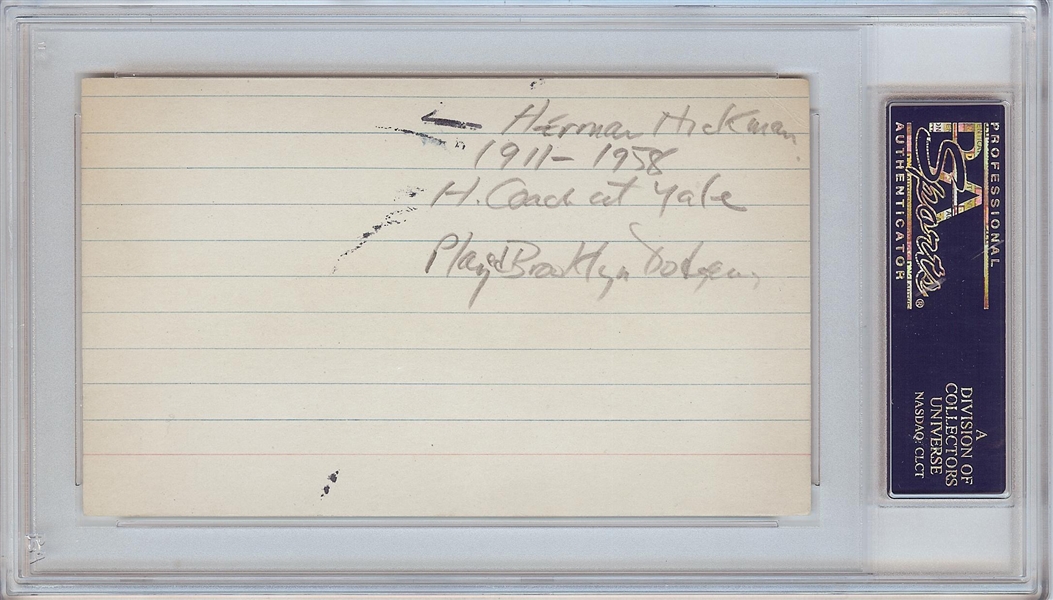 Herman Hickman
1911-1958
H. Coach at Yale
Played Brooklyn Dodgers
PROFESSIONAL
PSA
Sports®
AUTHENTICATOR
A
DIVISION OF
COLLECTORS
UNIVERSE
NASDAQ: CLCT